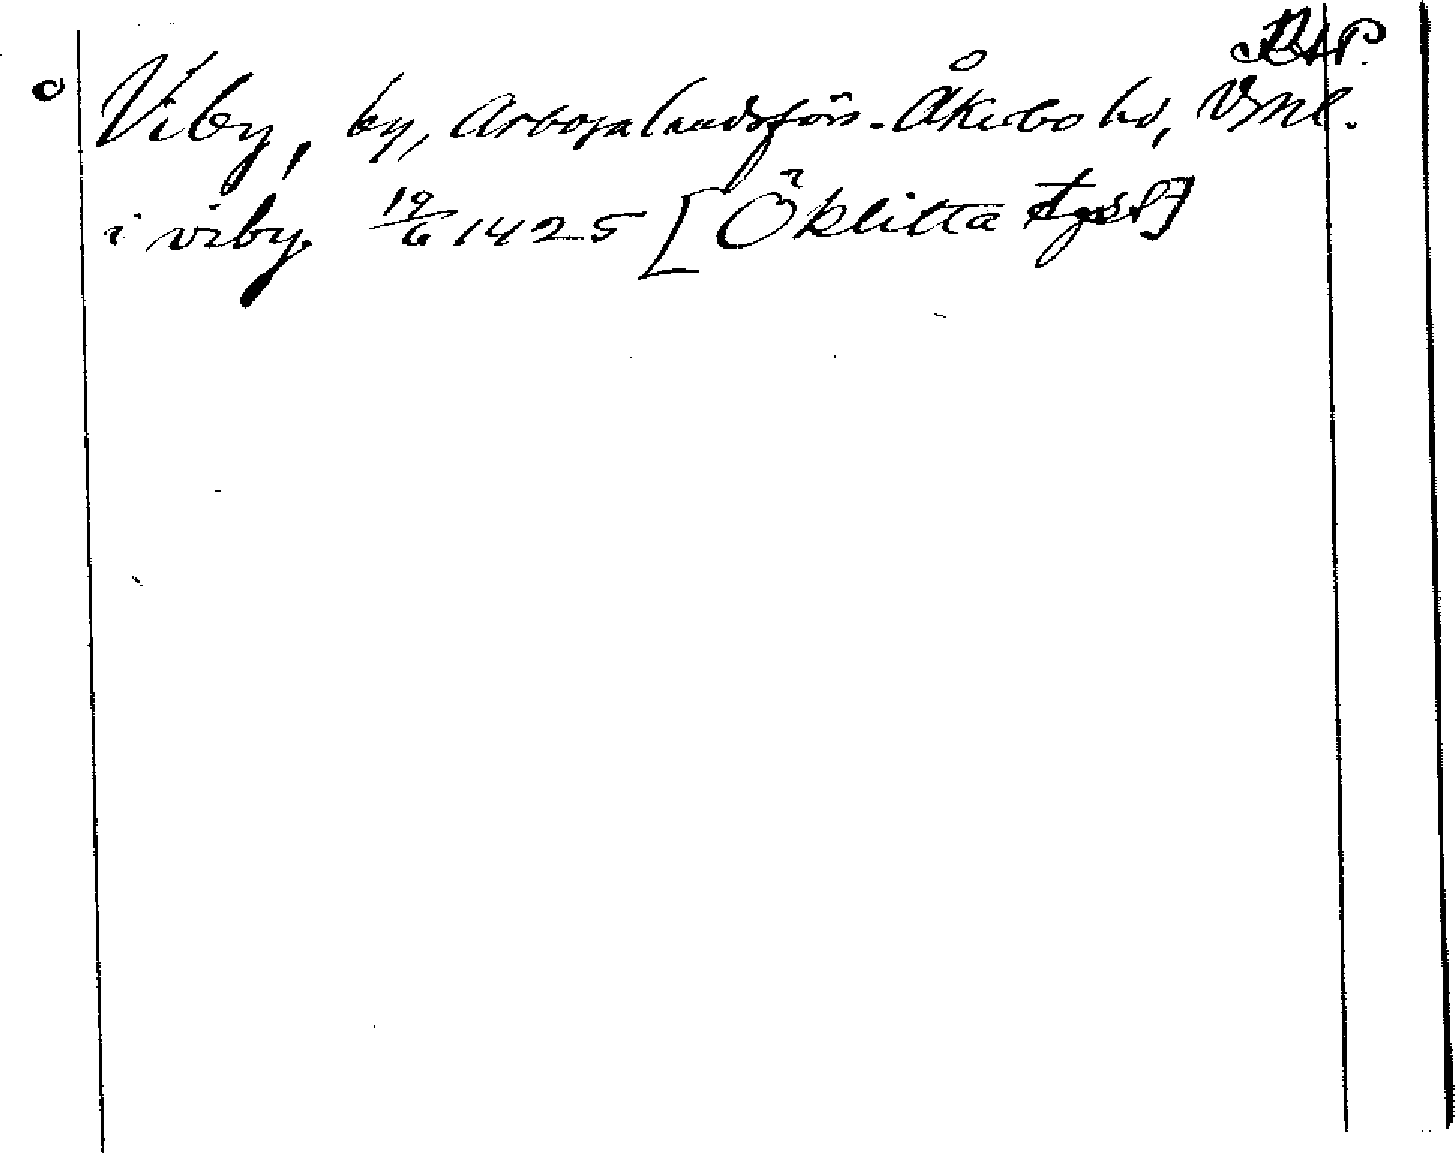 RAP.
Viby, by, Arboga landsförs. Åkerbo hd, Vsml.
i viby 19/6 1425 [Öklitta